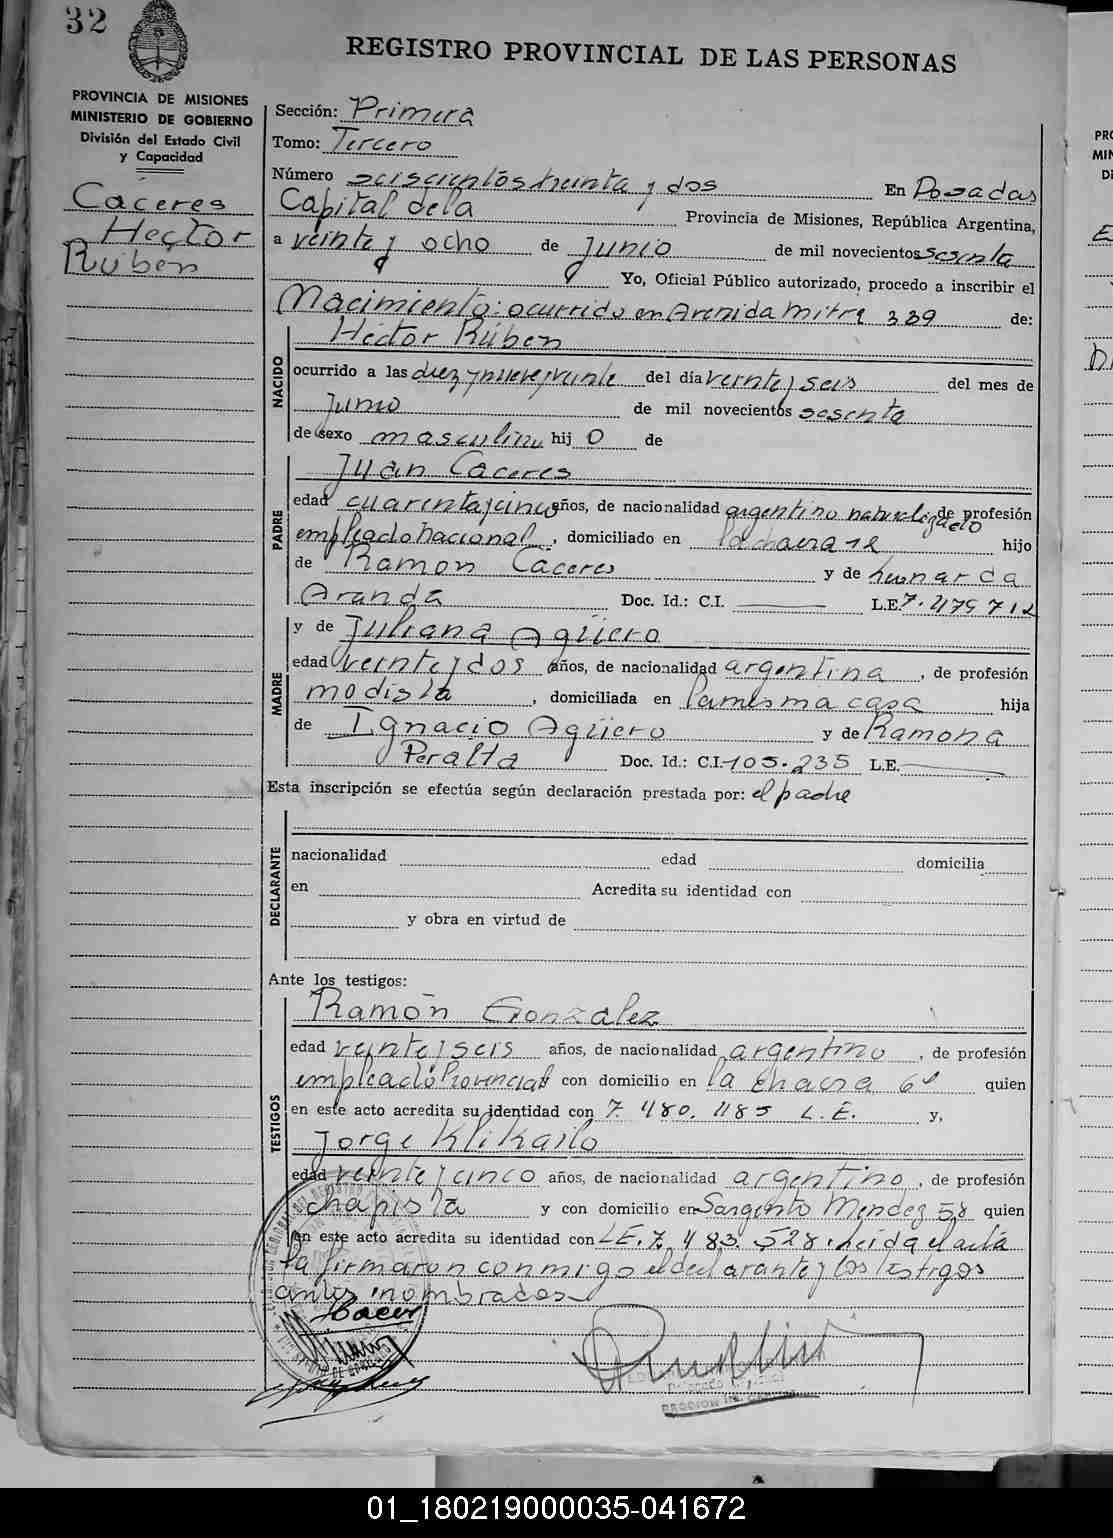 32
REGISTRO PROVINCIAL DE LAS PERSONAS
PROVINCIA DE MISIONES
MINISTERIO DE GOBIERNO
División del Estado Civil
y Capacidad
Cáceres
Hector
Rúben
Sección: Primera
Tomo: Tercero
Número seiscientos treinta y dos En Posadas
Capital de la Provincia de Misiones, República Argentina,
a veinte y ocho de Junio de mil novecientos sesenta
Yo, Oficial Público autorizado, procedo a inscribir el
Nacimiento: ocurrido en Avenida Mitre 339 de:
NACIDO
Héctor Rúben
ocurrido a las diez y nueve y veinte del día veinte y seis del mes de
Junio de mil novecientos sesenta
de sexo masculino hij o de
PADRE
Juan Caceres
edad cuarenta y cinco años, de nacionalidad argentino naturalizado de profesión
empleado nacional, domiciliado en la chacra 12 hijo
de Ramon Caceres y de
Aranda Doc. Id.: C.I. L.E. 7.479.712
MADRE
y de Juliana Agüero
edad veinte y dos años, de nacionalidad argentina, de profesión
modista, domiciliada en la misma casa hija
de Ignacio Agüero y de Ramona
Peralta Doc. Id.: C.I. 105.235 L.E.
Esta inscripción se efectúa según declaración prestada por: el padre
DECLARANTE
nacionalidad edad domicilia
en Acredita su identidad con
y obra en virtud de
Ante los testigos:
TESTIGOS
Ramón González
edad veinte y seis años, de nacionalidad argentino, de profesión
empleado Provincial con domicilio en la chacra quien
en este acto acredita su identidad con 7.480.485 L.E. y,
Jorge Klikailo
edad veinte y cinco años, de nacionalidad argentino, de profesión
chapista y con domicilio en Sargento Mendez 58 quien
en este acto acredita su identidad con L.E. 7.483.528. Leida el acta
la firmaron conmigo el declarante y los testigos
antes nombrados
01_180219000035-041672